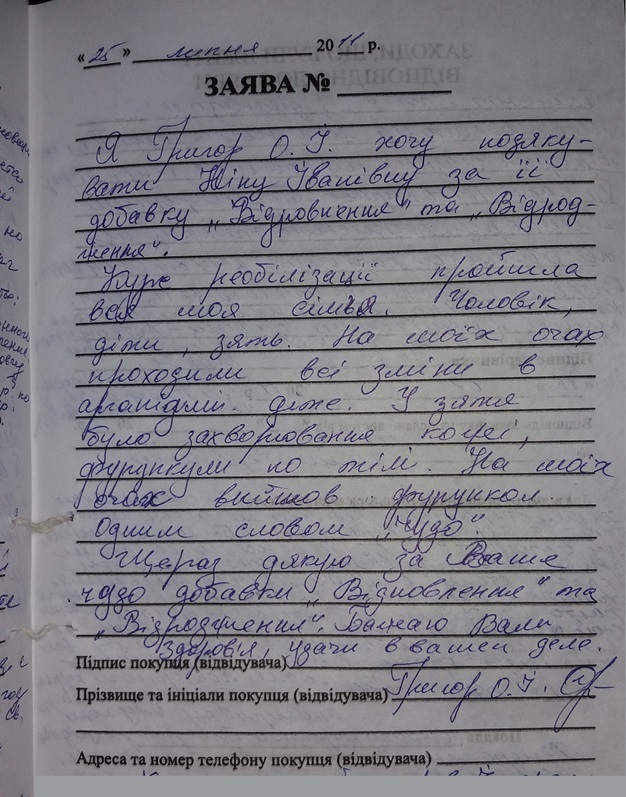 «25» липня 2011 р.
ЗАЯВА №
Я Григор О. І. хочу подяку-
вати Ніну Іванівну за її
добавку „Відновлення" та „Відрод-
ження".
Курс реобілізації пройшла
вся моя сімья. Чоловік,
діти, зять. На моїх очах
проходили всі зміни в
організмі діже. У зятя
було захворювання кочеі,
фурункули по тілі. На моїх
очах вийшов фурункол
Одним словом „Чудо".
Щераз дякую за Ваша
чудо добавки „Відновлення" та
„Візродження". Бажаю Вам
Здоров'я, удачи в вашем деле.
Підпис покупця (відвідувача)
Прізвище та ініціали покупця (відвідувача) Григор О. І.
Адреса та номер телефону покупця (відвідувача)